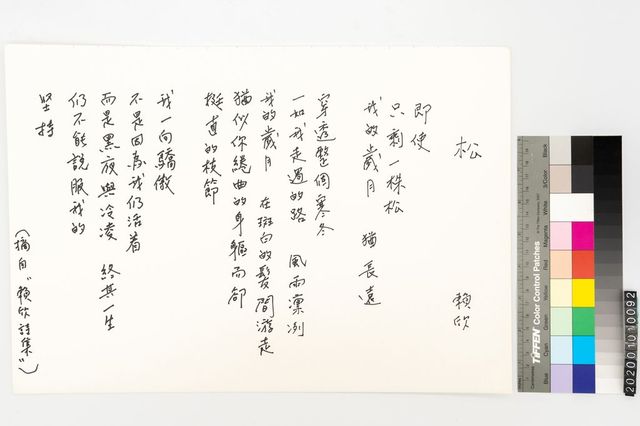 松
賴欣
即使
只剩一株松
我的歲月 猶長遠
穿透整個寒冬
一如我走過的路 風雨凛冽
我的歲月 在斑白的髮間游走
猶似你綣曲的身軀而卻
挺直的枝節
我一向驕傲
不是因為我们活着
而是黑夜與冷凌 終其一生
仍不能說服我的
坚持
(摘自"賴欣詩集")
Black
3/Color
White
Magenta
Red
Yellow
Green
Cyan
Blue
TIFFEN Color Control Patches
2020010110092